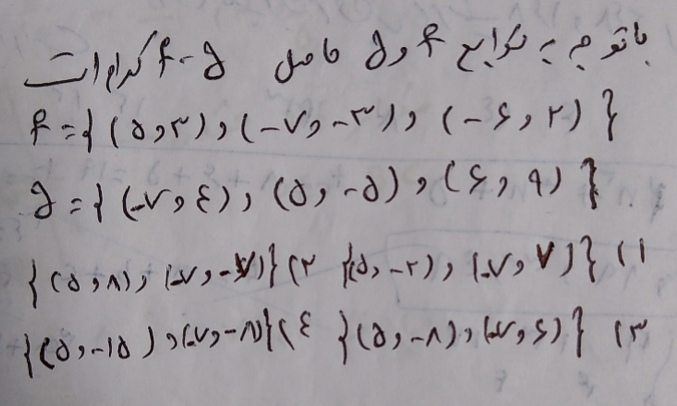 با توجه به توابع f و g حاصل f-g کدام است
f = {(۵,۳), (-۷,-۳), (-۶,۲)}
g = {(-۷,۴), (۵,-۵), (۶,۹)}
۱) {(۵,-۲), (-۷,۷)} ۲) {(۵,۸), (-۷,-۷)}
۳) {(۵,-۸), (-۷,۶)} ۴) {(۵,-۱۵), (-۷,-۸)}